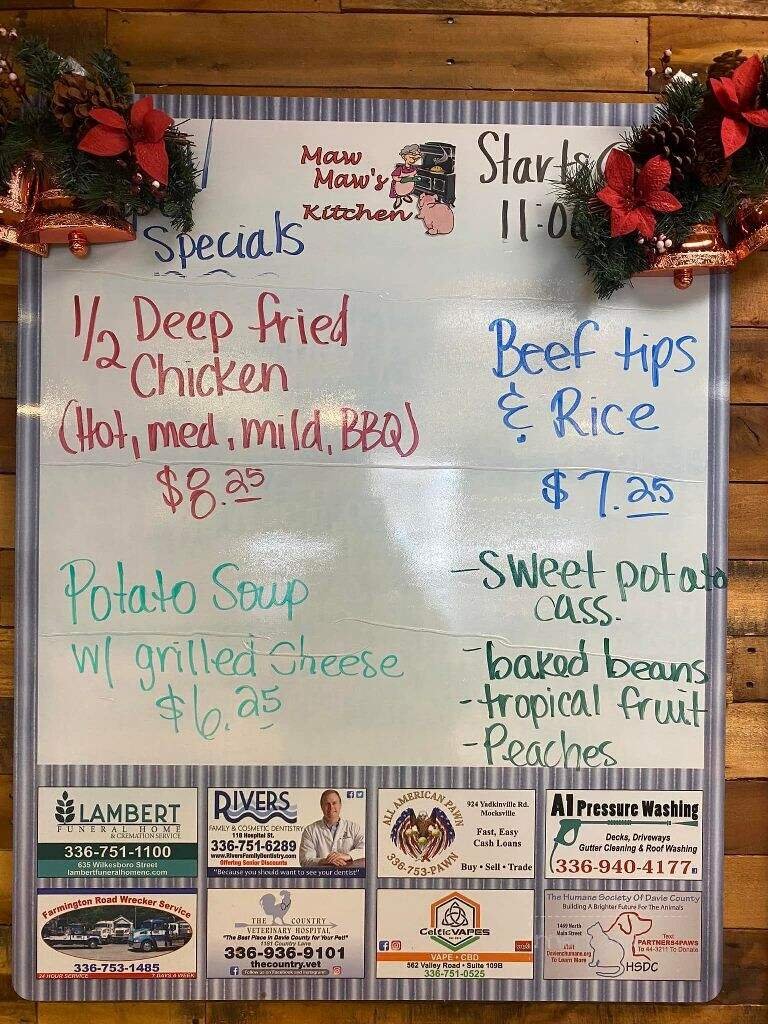 Maw
Maw's
Kitchen
Starts
11:0
Specials
1/2 Deep fried
Chicken
(Hot, med, mild, BBQ)
$8.25
Beef tips
& Rice
$7.25
Potato Soup
w/ grilled Cheese
$6.25
-Sweet potato
cass.
-baked beans
-tropical fruit
-Peaches
LAMBERT
FUNERAL HOME
& CREMATION SERVICE
336-751-1100
635 Wilkesboro Street
lambertfuneralhomenc.com
RIVERS
FAMILY & COSMETIC DENTISTRY
118 Hospital St.
336-751-6289
www.RiversFamilyDentistry.com
Offering Senior Discounts
"Because you should want to see your dentist"
ALL AMERICAN PAWN
336-753-PAWN
924 Yadkinville Rd.
Mocksville
Fast, Easy
Cash Loans
Buy • Sell • Trade
A1 Pressure Washing
Decks, Driveways
Gutter Cleaning & Roof Washing
336-940-4177
Farmington Road Wrecker Service
336-753-1485
24 HOUR SERVICE 7 DAYS A WEEK
THE COUNTRY
VETERINARY HOSPITAL
"The Best Place in Davie County for Your Pet!"
1181 Country Lane
336-936-9101
thecountry.vet
Follow us on Facebook and Instagram!
CelticVAPES
VAPE • CBD
562 Valley Road • Suite 109B
336-751-0525
The Humane Society Of Davie County
Building A Brighter Future For The Animals
1469 North
Main Street
Visit
Daviehumane.org
To Learn More
Text
PARTNERS4PAWS
To 44-3211 To Donate
HSDC